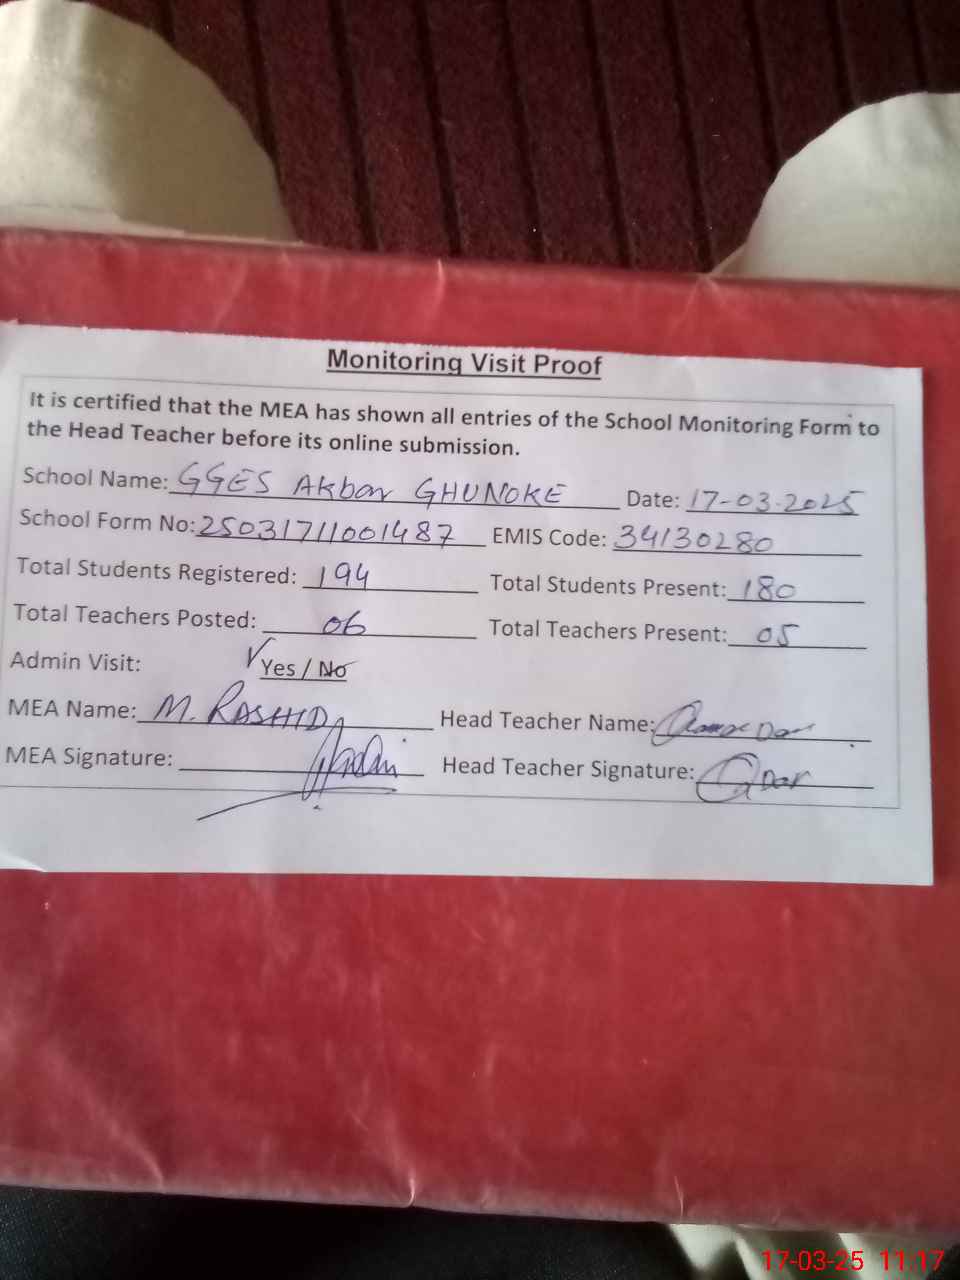 Monitoring Visit Proof
It is certified that the MEA has shown all entries of the School Monitoring Form to
the Head Teacher before its online submission.
School Name: GGES Akbar GHUNOKE Date: 17-03-2025
School Form No: 25031711001487 EMIS Code: 34130280
Total Students Registered: 194 Total Students Present: 180
Total Teachers Posted: 06 Total Teachers Present: 05
Admin Visit: Yes / No
MEA Name: M. RASHID Head Teacher Name: Dar
MEA Signature: Head Teacher Signature: Dar
17-03-25 11:17